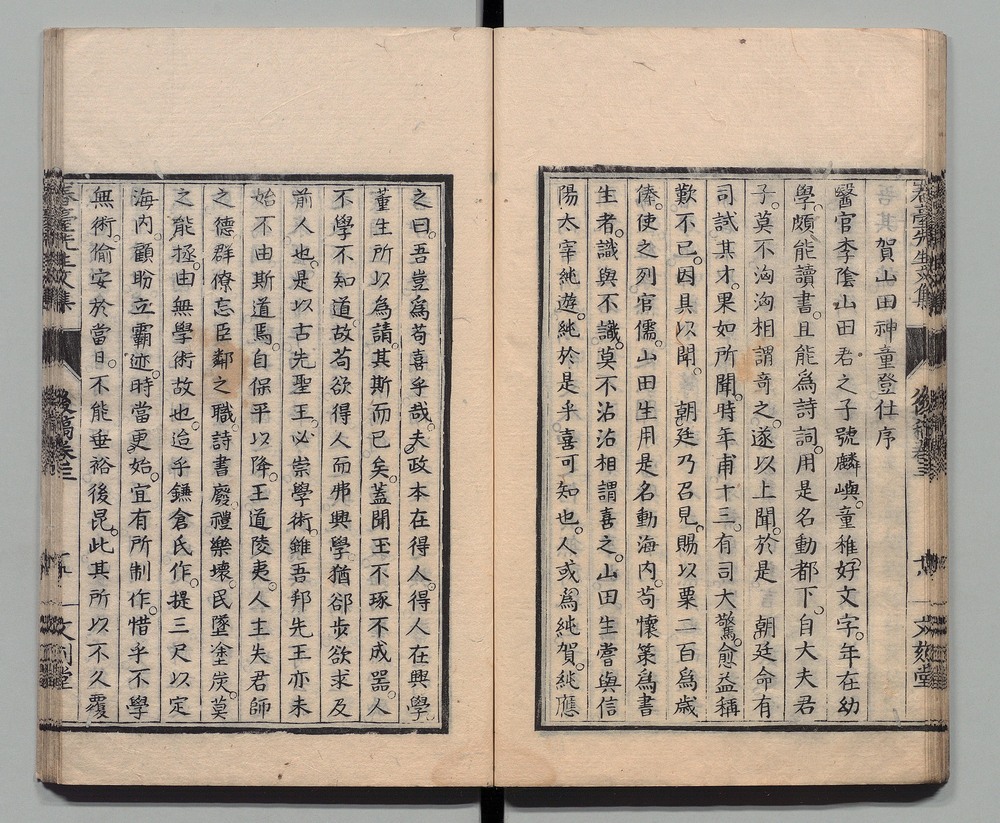 賀山田神童登仕序
醫官李陰山田君之子號麟嶼。童稚好文字。年在幼
學。頗能讀書。且能爲詩詞。用是名動都下。自大夫君
子。莫不洶洶相謂奇之。遂以上聞。於是 朝廷命有
司試其才。果如所聞。時年甫十三。有司大驚。愈益稱
歎不已。因具以聞。 朝廷乃召見。賜以粟二百爲歲
俸。使之列官儒。山田生用是名動海内。苟懷策爲書
生者。識與不識。莫不沾沾相謂喜之。山田生嘗與信
陽太宰純遊。純於是乎喜可知也。人或爲純賀。純應
之曰。吾豈爲苟喜乎哉。夫政本在得人。得人在興學。
董生所以為請。其斯而已矣。蓋聞玉不琢不成器。人
不學不知道。故苟欲得人而弗興學。猶郤步欲求及
前人也。是以古先聖王。必崇學術。雖吾邦先王亦未
始不由斯道焉。自保平以降。王道陵夷。人主失君師
之德。群僚忘臣鄰之職。詩書廢。禮樂壞。民墜塗炭。莫
之能拯。由無學術故也。迨乎鎌倉氏作。提三尺以定
海内。顧盼立霸迹。時當更始。宜有所制作。惜乎不學
無術。偷安於當日。不能垂裕後昆。此其所以不久覆
春臺先生文集
後稿卷三